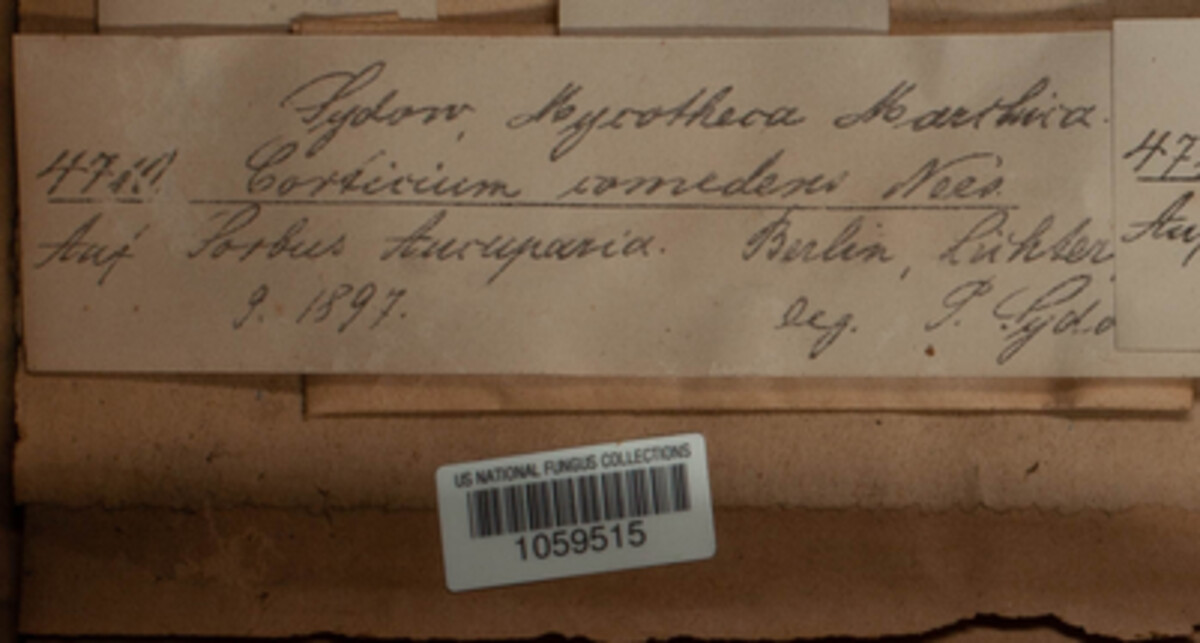 Sydow, Mycotheca Marchica.
Corticium comedens Nees.
Auf Sorbus Aucuparia. Berlin, Lichter
9. 1897. leg. P. Sydo
47
Au
US NATIONAL FUNGUS COLLECTIONS
1059515